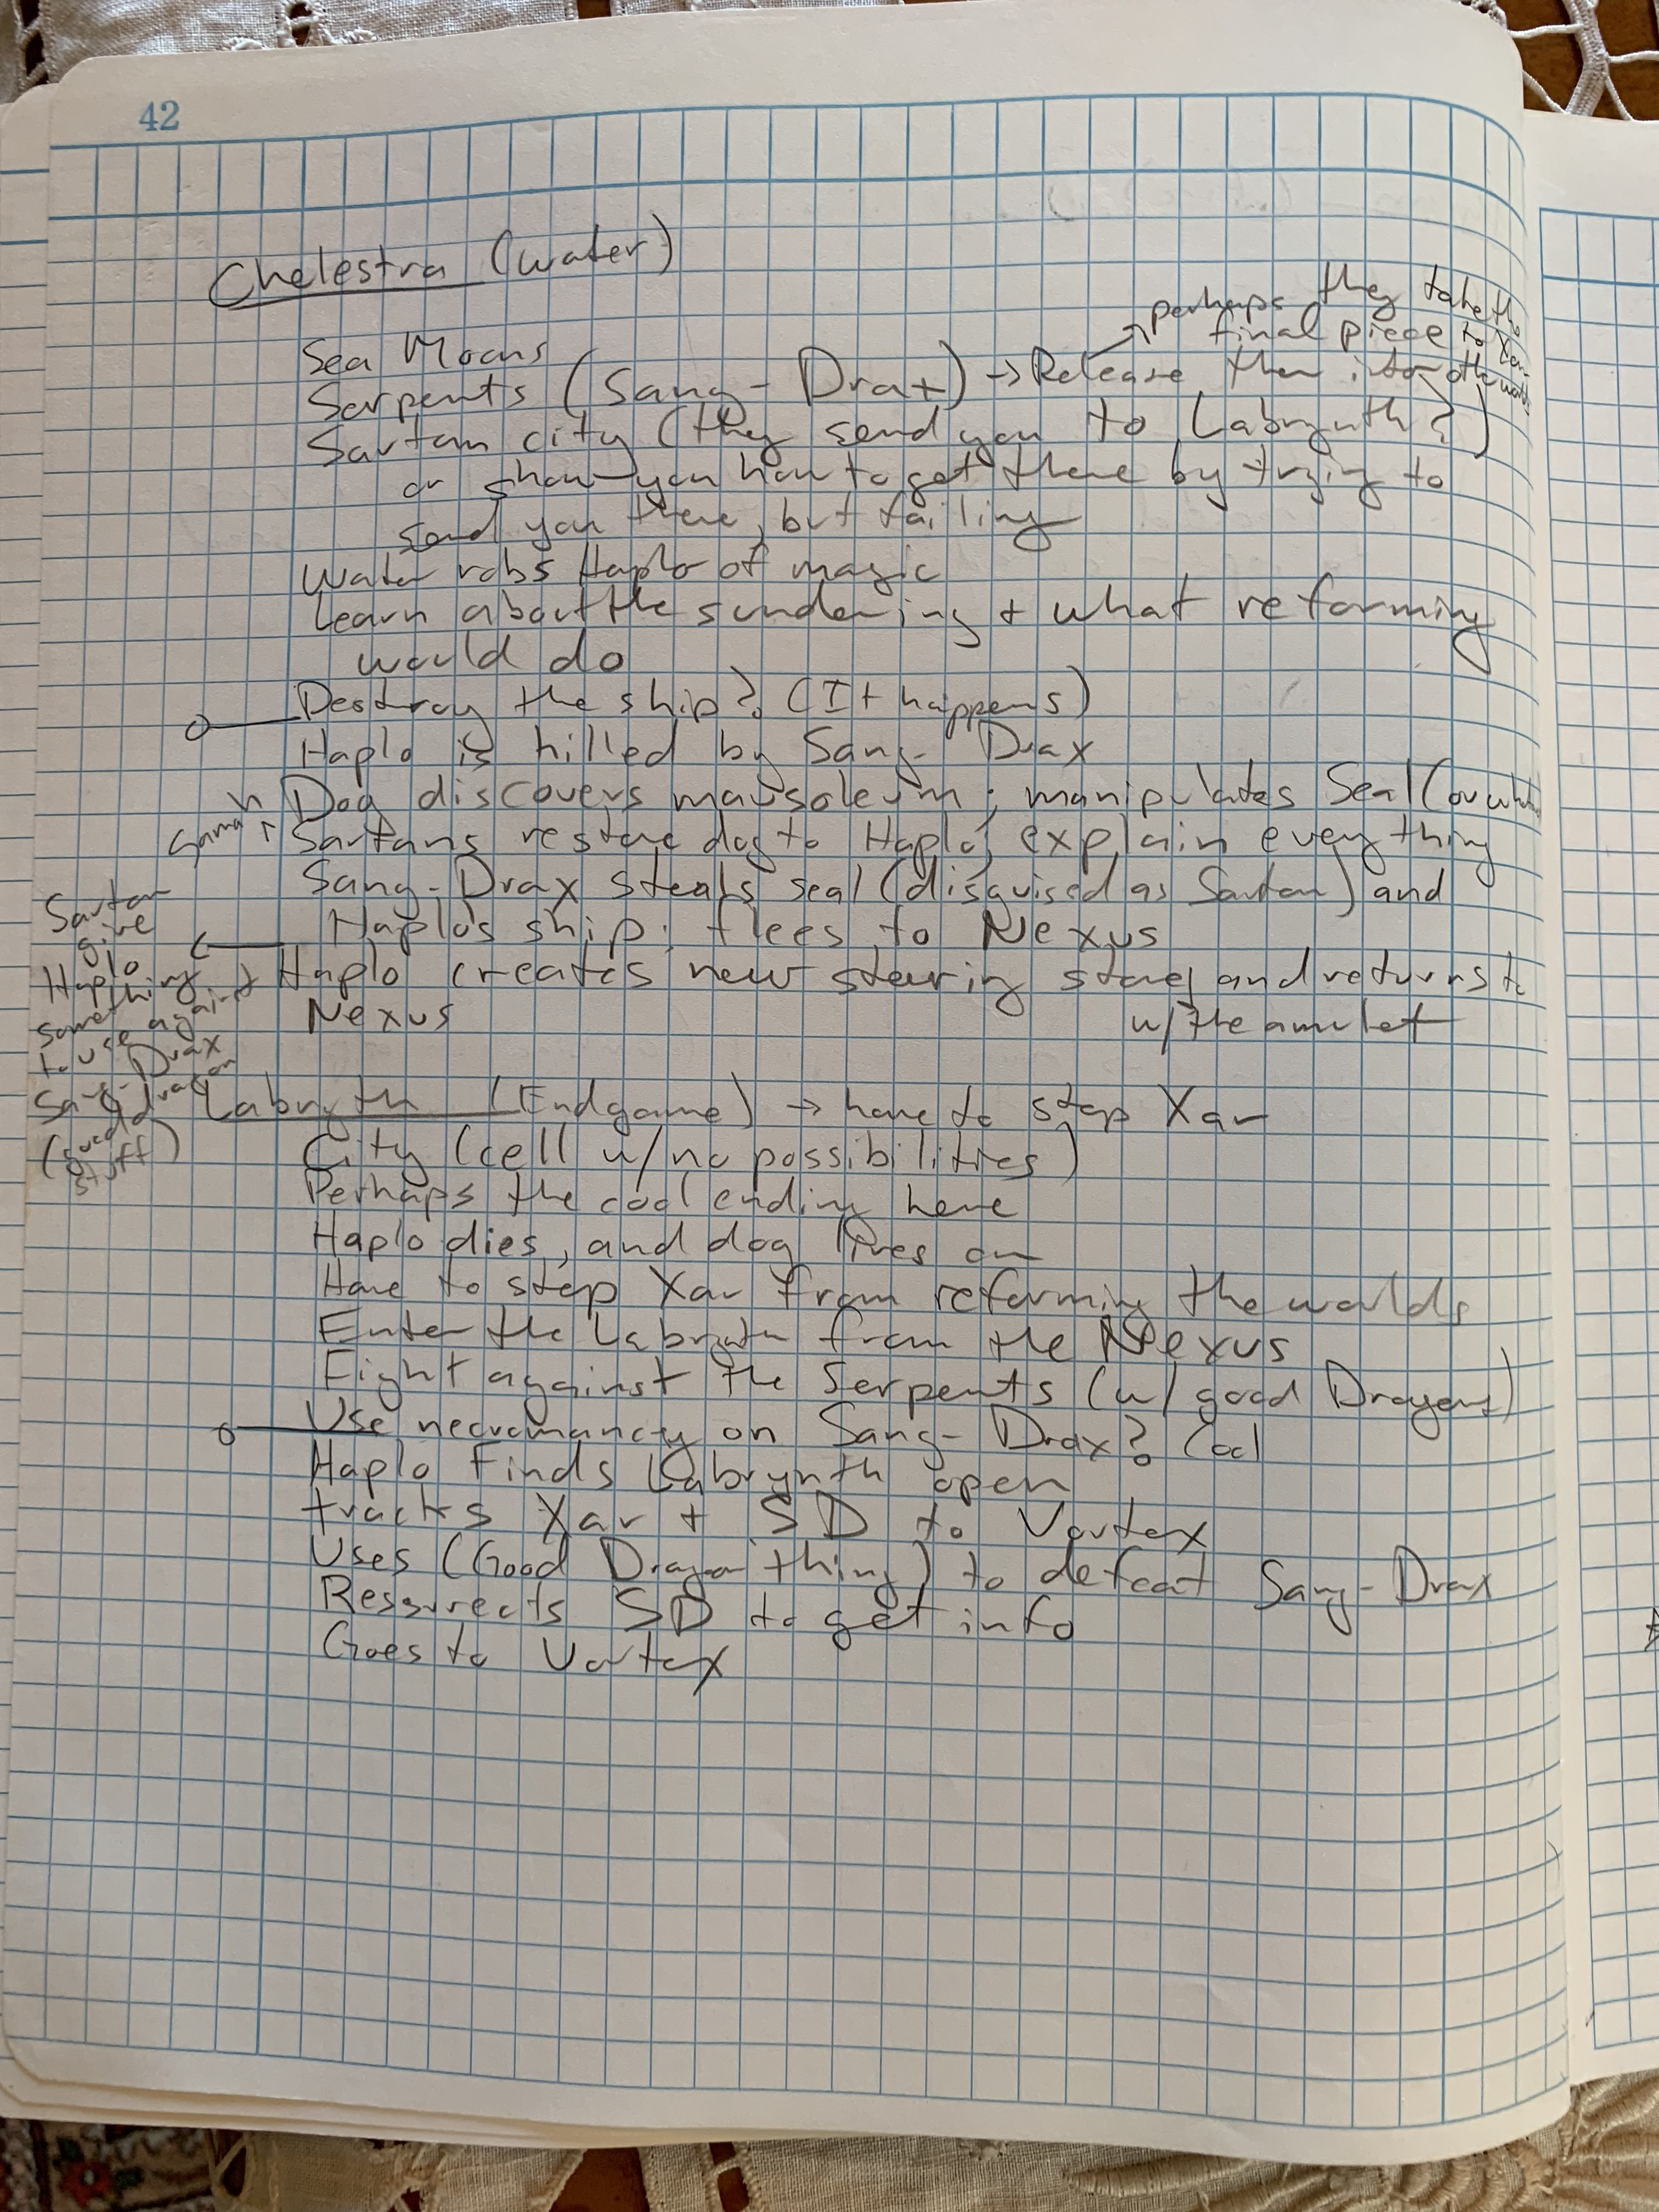 42
Chelestra (water)
perhaps they take the
final piece to Xar
Sea Moons
Serpents (Sang-Drax) → Release them into other worlds
Sartan city (they send you to Labrynth?)
or show you how to get there by trying to
send you there, but failing
Water robs Haplo of magic
Learn about the sundering + what reforming
would do
Destroy the ship? (It happens)
Haplo is killed by Sang-Drax
Dog discovers mausoleum; manipulates Seal (or
Samah
Sartans restore dog to Haplo, explain everything
Sang-Drax steals seal (disguised as Sartan) and
Haplo's ship; flees to Nexus
Haplo creates new steering stone and returns to
Nexus w/ the amulet
Sartan
give
Haplo
something
to use against
Sang-Drax
(good dragon
stuff)
Labryth (Endgame) → have to stop Xar
City (cell w/ no possibilities)
Perhaps the cool ending here
Haplo dies, and dog lives on
Have to stop Xar from reforming the worlds
Enter the Labrynth from the Nexus
Fight against the Serpents (w/ good Dragons)
Use necromancy on Sang-Drax? Cool
Haplo Finds Labrynth open
tracks Xar + SD to Vortex
Uses (Good Dragon thing) to defeat Sang-Drax
Ressurects SD to get info
Goes to Vortex